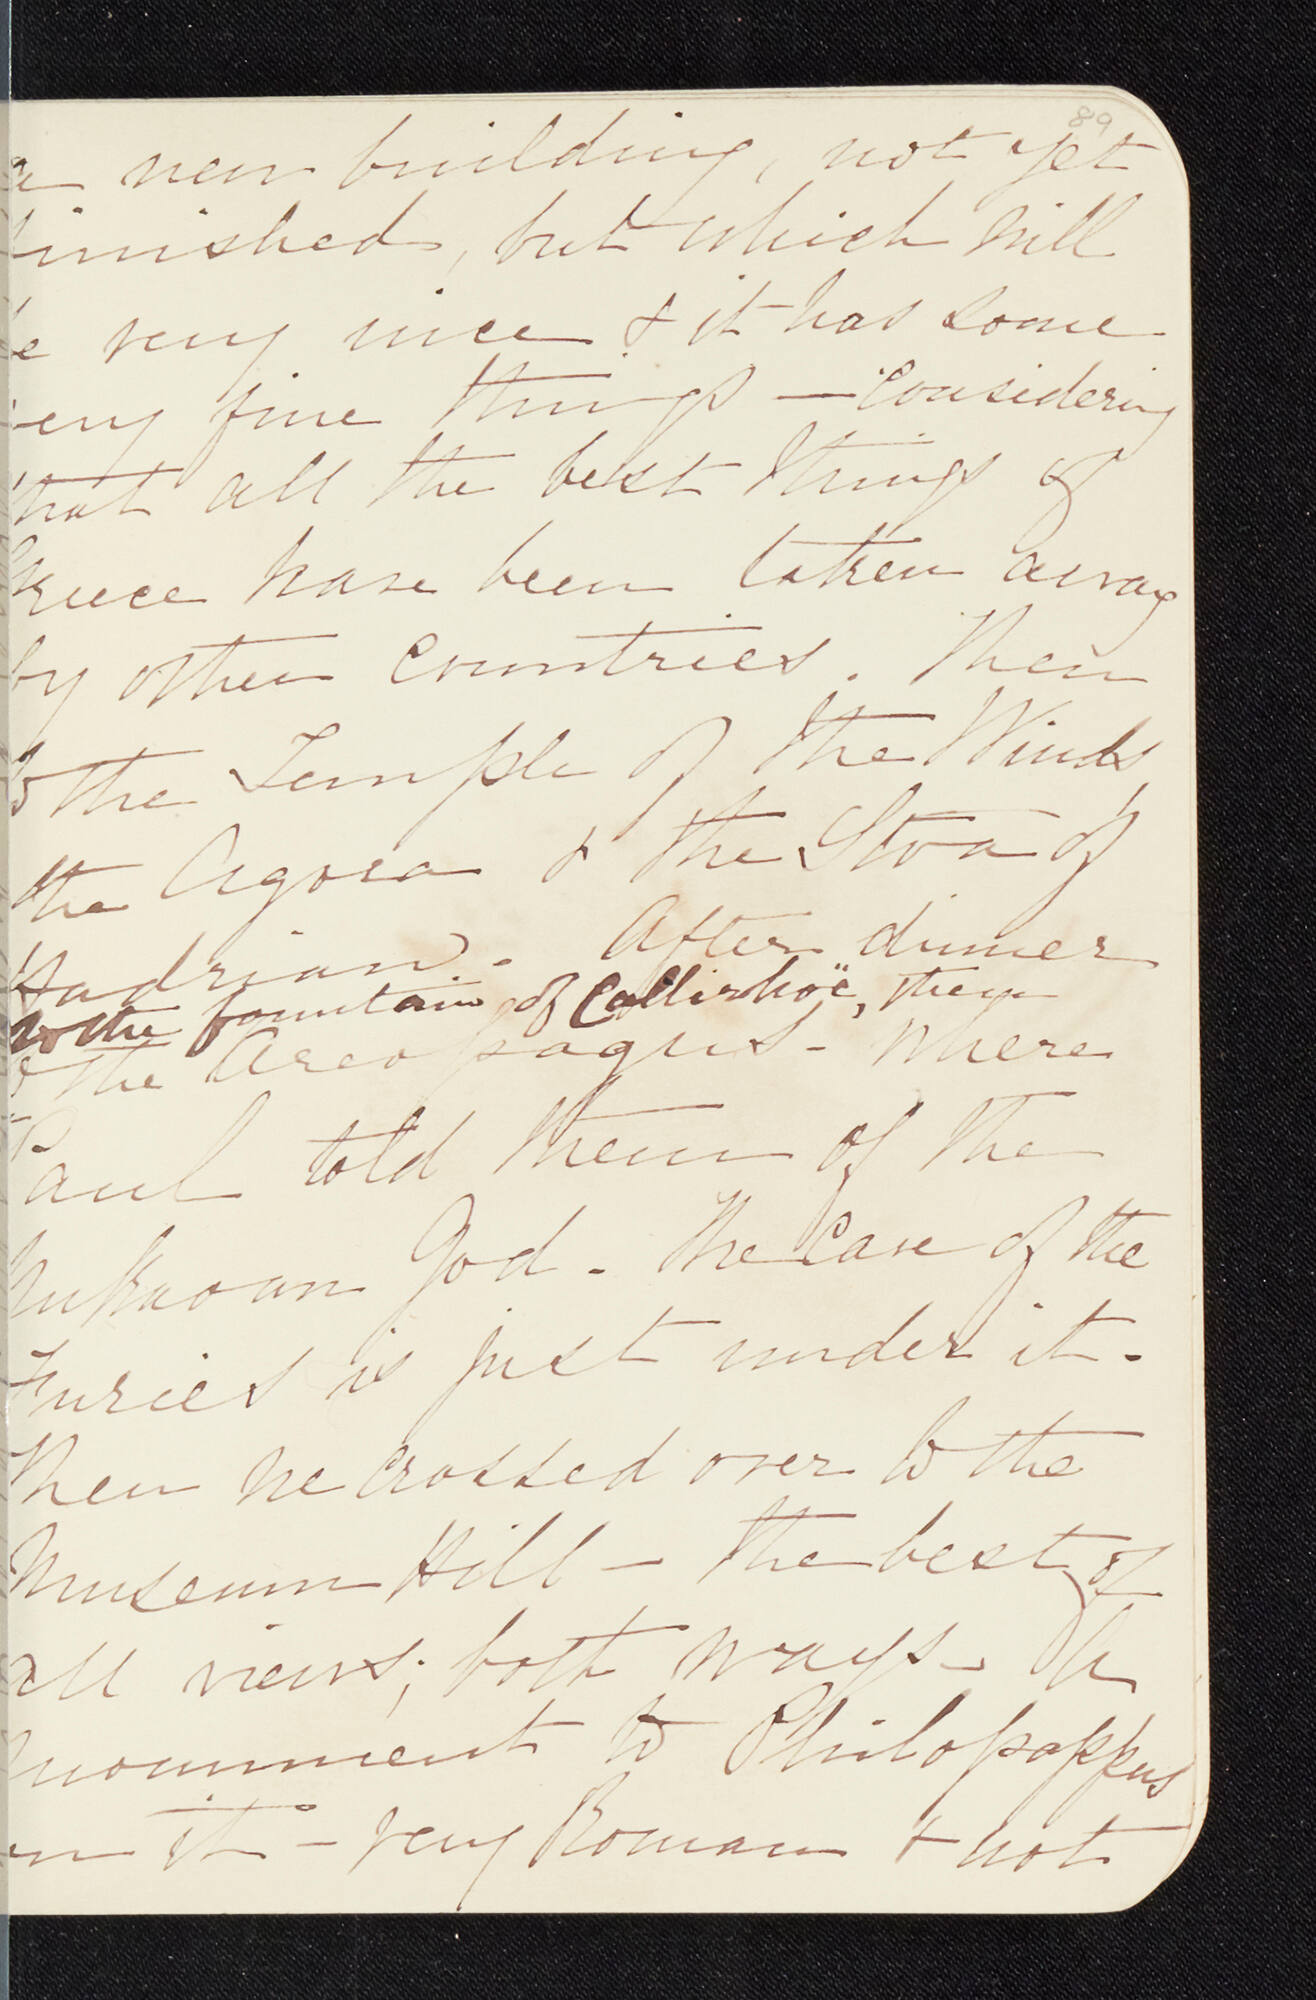 89
a new building, not yet
finished, but which will
be very nice & it has some
very fine things — considering
that all the best things of
Greece have been taken away
by other countries. Then
to the Temple of the Winds,
the Agora & the Stoa of
Hadrian. After dinner
to the fountain of Callirhöe, then
to the Areopagus - where
Paul told them of the
Unknown God. The Cave of the
Furies is just under it.
Then we crossed over to the
Museum Hill - the best of
all views, both ways. A
monument to Philopappus
on it - very Roman & not